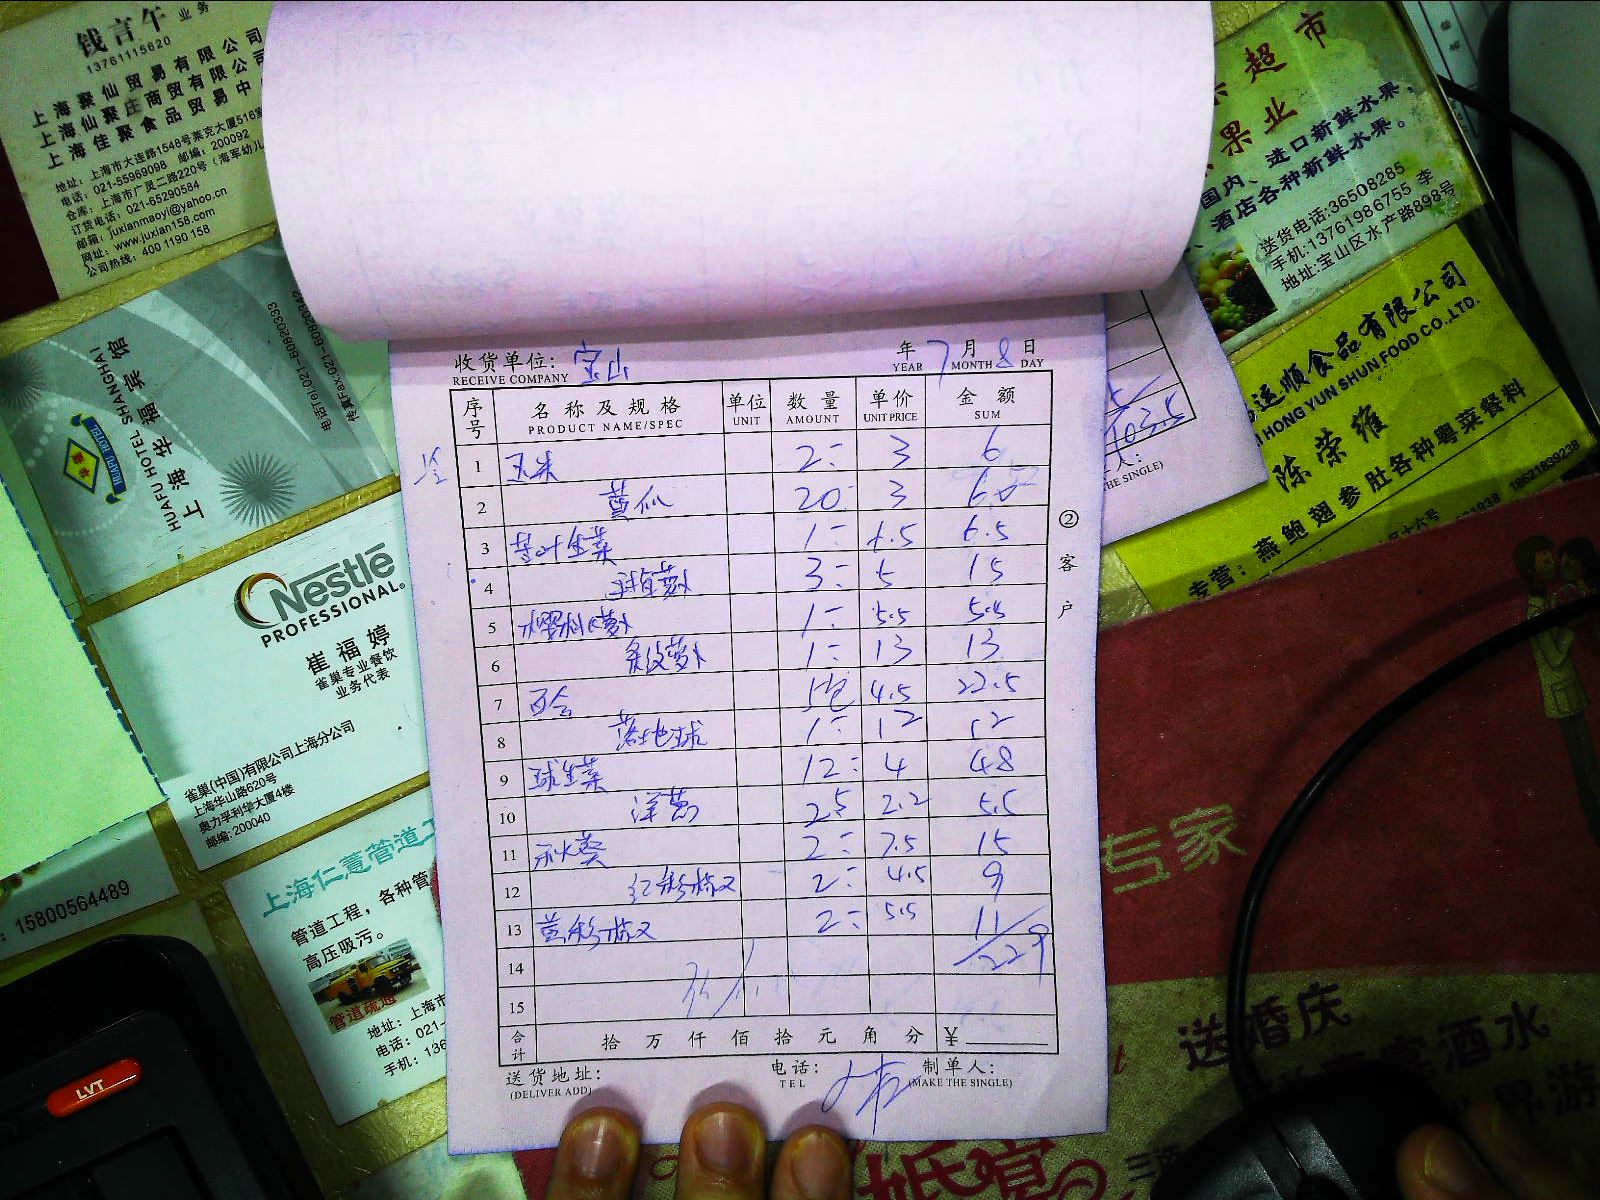 钱言午 业务
13761115620
上海聚仙贸易有限公司
上海仙聚庄商贸有限公司
上海佳聚食品贸易中
地址：上海市大连路1548号莱克大厦516室
电话：021-55969098 邮编：200092
仓库：上海市广灵二路220号（海军幼儿
订货电话：021-65290584
邮箱：juxianmaoyi@yahoo.cn
网址：www.juxian158.com
公司热线：400 1190 158
超市
果业
国内、进口新鲜水果，
酒店各种新鲜水果。
送货电话:36508285
手机:13761986755 李
地址:宝山区水产路898号
运顺食品有限公司
HONG YUN SHUN FOOD CO.,LTD.
陈荣维
专营：燕鲍翅参肚各种粤菜餐料
18621839238
上海华福宾馆
HUAFU HOTEL SHANGHAI
HUAFU HOTEL
电话Tel:021-60820333
Nestlé
PROFESSIONAL.
崔福婷
雀巢专业餐饮
业务代表
雀巢(中国)有限公司上海分公司
上海华山路620号
奥力孚利华大厦4楼
邮编:200040
15800564489
上海仁薏管道工
管道工程，各种管
高压吸污。
管道疏通
地址：上海市
电话：021-
手机：136
LVT
收货单位: 宝山 年 7 月 8 日
RECEIVE COMPANY YEAR MONTH DAY
序号 名称及规格 单位 数量 单价 金额
PRODUCT NAME/SPEC UNIT AMOUNT UNIT PRICE SUM
1 玉米 2: 3 6
2 黄瓜 20: 3 60
3 苦叶生菜 1: 6.5 6.5
4 3: 5 15
5 樱桃萝卜 1: 5.5 5.5
6 萝卜 1: 13 13
7 百合 5包 4.5 22.5
8 1: 12 12
9 球生菜 12: 4 48
10 洋葱 25 2.2 5.5
11 秋葵 2: 7.5 15
12 红彩椒 2: 4.5 9
13 黄彩椒 2: 5.5 11
14 229
15
合计 拾万仟佰拾元角分 ￥
送货地址: 电话: 制单人:
(DELIVER ADD) TEL (MAKE THE SINGLE)
②客户
103.5
人:
HE SINGLE)
专家
送婚庆
酒水